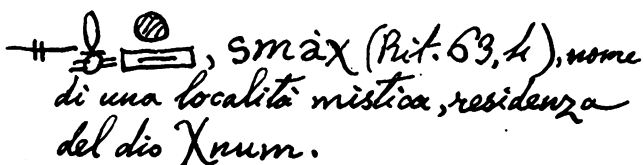 , smàχ (Rit. 63, 4), nome
di una località mistica, residenza
del dio Xnum.